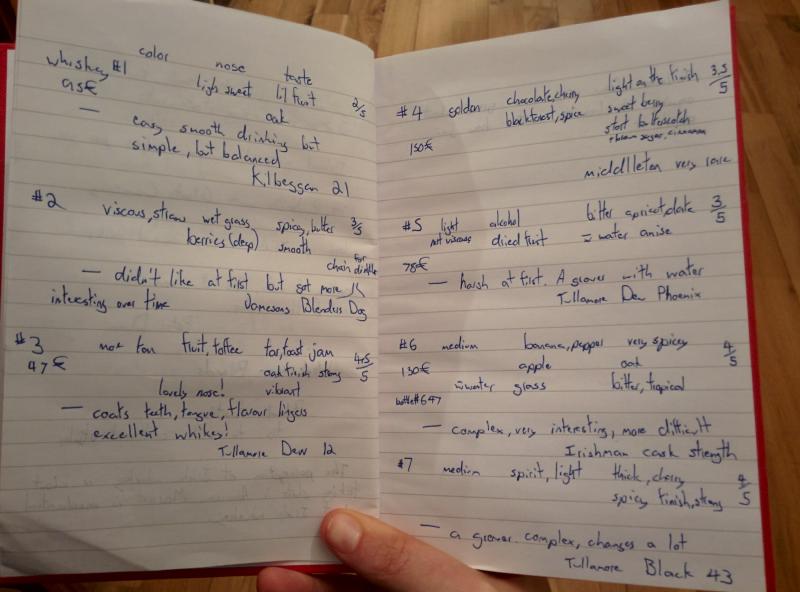 color nose taste
whiskey #1 ligh sweet lil fruit 2/5
95€ oak
— easy smooth drinking but
simple, but balanced
Kilbeggan 21
#2 viscous, straw wet grass spicy, butter 3/5
berries (deep) smooth
for
— didn't like at first but got more
interesting over time Jamesons Blenders Dog
#3 fruit, toffee tar, toast jam 4.5/5
47€ oak finish strong
lovely nose! vibrant
— coats teeth, tongue, flavour lingers
excellent whikey!
Tullamore Dew 12
#4 golden chocolate, cherry light on the finish 3.5/5
blackforest, spice sweet berry
start butterscotch
150€ + brown sugar, cinnamon
middlleton very rare
#5 light alcohol bitter apricot, date 3/5
not viscous dried fruit water anise
78€
— harsh at first. A grower with water
Tullamore Dew Phoenix
#6 medium banana, pepper very spicey 4/5
130€ apple oak
water glass bitter, tropical
bottle# 647
— complex, very interesting, more difficult
Irishman cask strength
#7 medium spirit, light thick, cherry 4/5
spicy finish, strong
— a grower complex, changes a lot
Tullamore Black 43